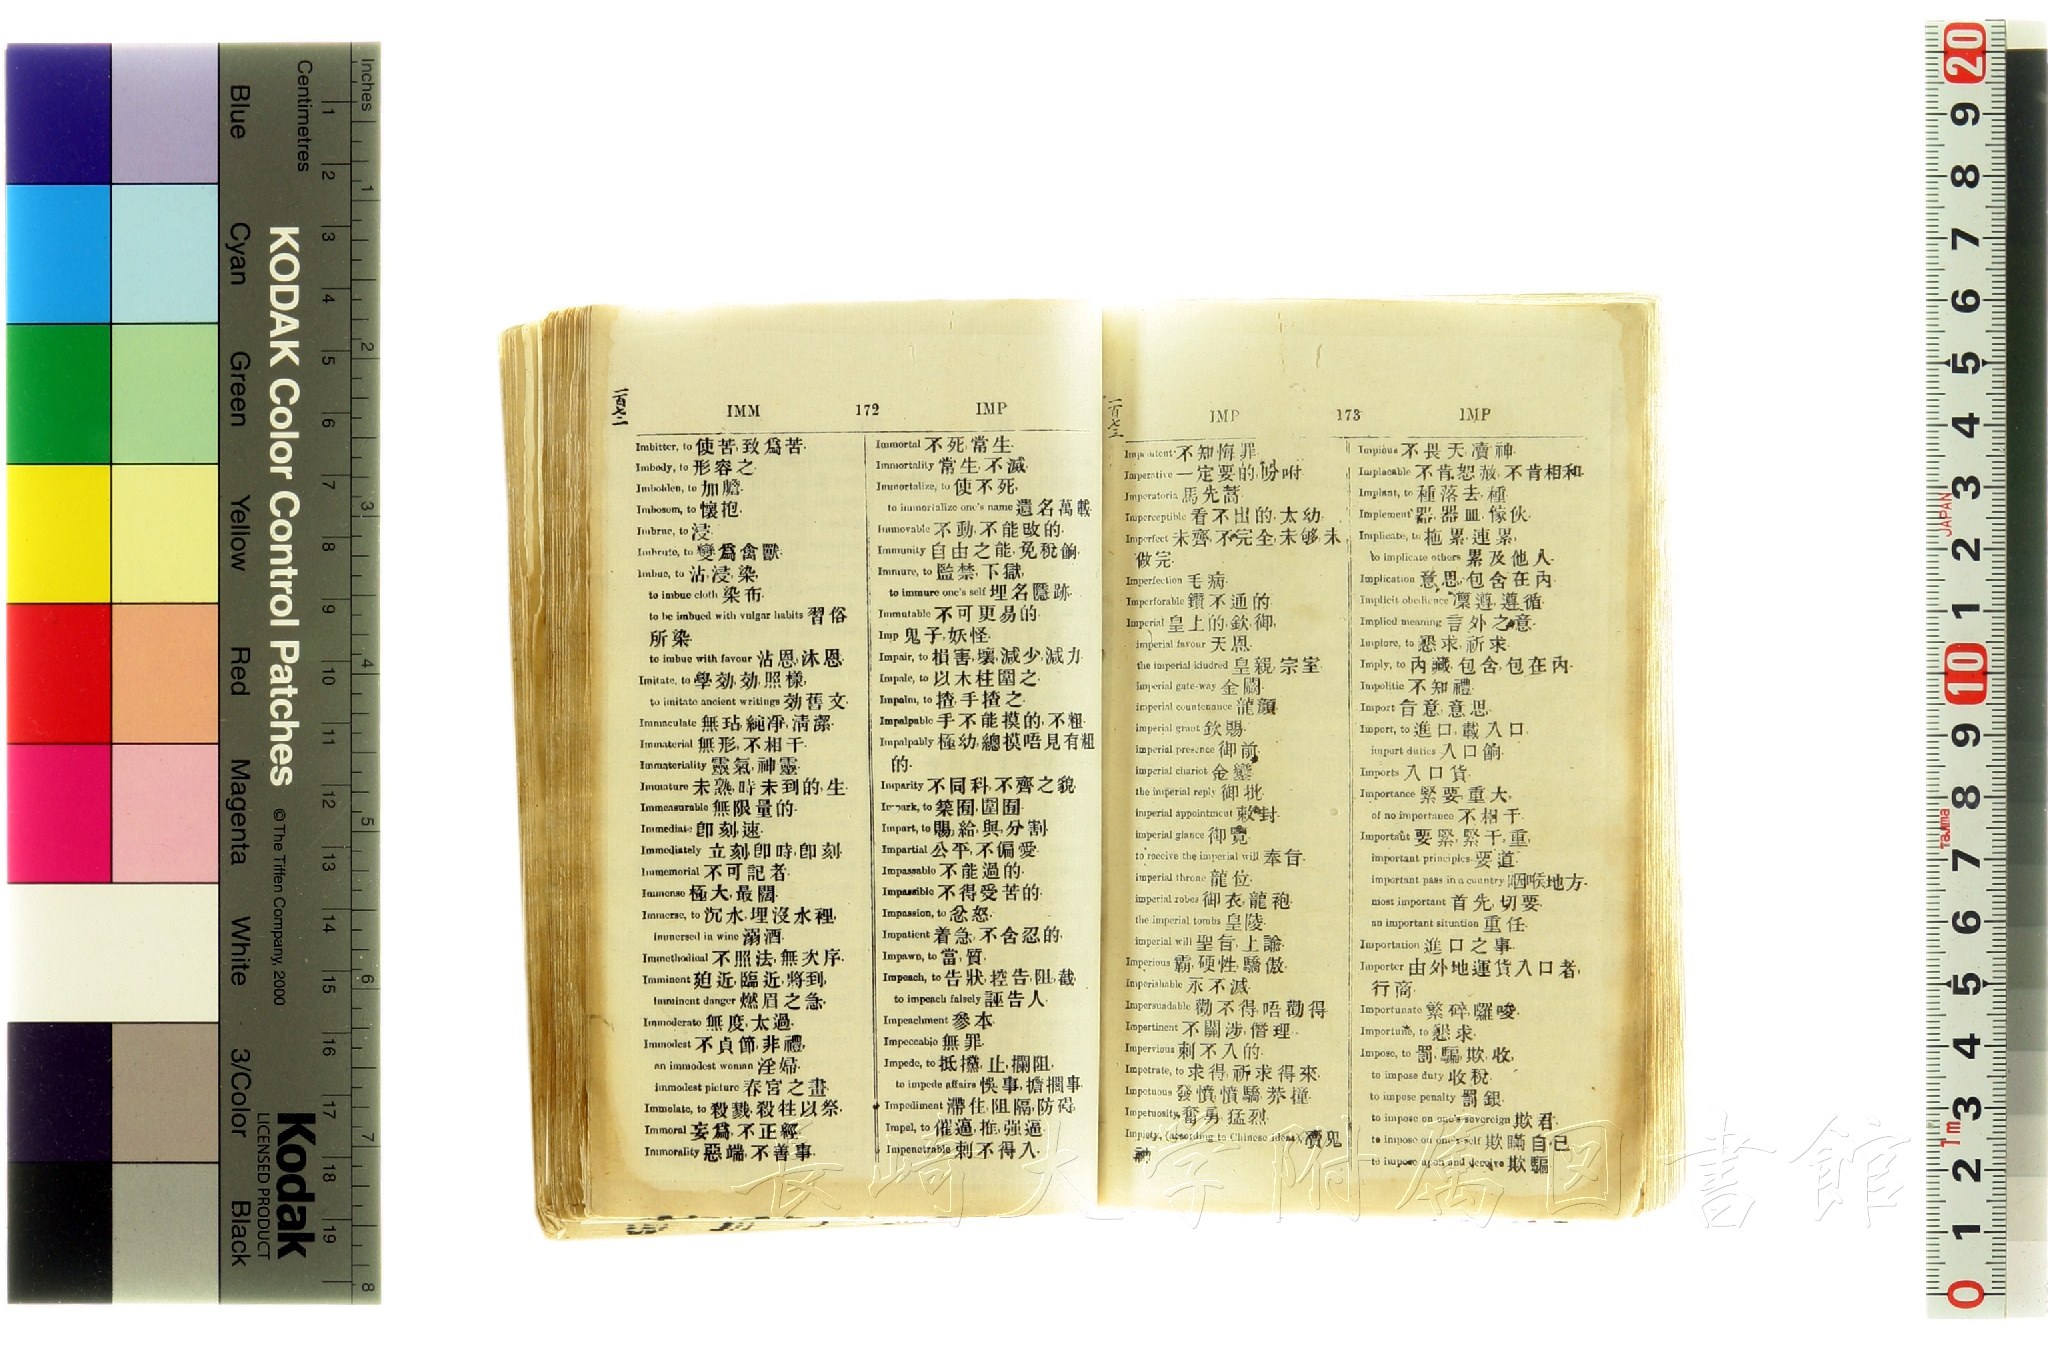 Inches
Centimetres
1 2 3 4 5 6 7 8
1 2 3 4 5 6 7 8 9 10 11 12 13 14 15 16 17 18 19
KODAK Color Control Patches
© The Tiffen Company, 2000
Kodak
LICENSED PRODUCT
Blue
Cyan
Green
Yellow
Red
Magenta
White
3/Color
Black
一百七二
IMM 172 IMP
Imbitter, to 使苦, 致爲苦.
Imbody, to 形容之.
Imbolden, to 加膽.
Imbosom, to 懷抱.
Imbrue, to 浸.
Imbrute, to 變爲禽獸.
Imbue, to 沾, 浸, 染,
to imbue cloth 染布.
to be imbued with vulgar habits 習俗
所染.
to imbue with favour 沾恩, 沐恩.
Imitate, to 學効, 効, 照樣,
to imitate ancient writings 効舊文.
Immaculate 無玷, 純凈, 清潔.
Immaterial 無形, 不相干.
Immateriality 靈氣, 神靈.
Immature 未熟, 時未到的, 生.
Immeasurable 無限量的.
Immediate 卽刻, 速.
Immediately 立刻, 卽時, 卽刻.
Immemorial 不可記者.
Immense 極大, 最闊.
Immerse, to 沉水, 埋沒水裡,
immersed in wine 溺酒.
Immethodical 不照法, 無次序.
Imminent 廹近, 臨近, 將到,
imminent danger 燃眉之急.
Immoderate 無度, 太過.
Immodest 不貞節, 非禮,
an immodest woman 淫婦.
immodest picture 春宮之畫.
Immolate, to 殺戮, 殺牲以祭.
Immoral 妄爲, 不正經.
Immorality 惡端, 不善事.
Immortal 不死, 常生.
Immortality 常生, 不滅.
Immortalize, to 使不死,
to immortalize one's name 遺名萬載.
Immovable 不動, 不能改的.
Immunity 自由之能, 免稅餉.
Immure, to 監禁, 下獄,
to immure one's self 埋名隱跡.
Immutable 不可更易的.
Imp 鬼子, 妖怪.
Impair, to 損害, 壞, 減少, 減力.
Impale, to 以木柱圍之.
Impalm, to 揸手揸之.
Impalpable 手不能摸的, 不粗.
Impalpably 極幼, 總摸唔見有粗
的.
Imparity 不同科, 不齊之貌.
Impark, to 築囿, 圍囿.
Impart, to 賜, 給, 與, 分割.
Impartial 公平, 不偏愛.
Impassable 不能過的.
Impassible 不得受苦的.
Impassion, to 忿怒.
Impatient 着急, 不含忍的.
Impawn, to 當, 質.
Impeach, to 告狀, 控告, 阻截,
to impeach falsely 誣告人.
Impeachment 參本.
Impeccable 無罪.
Impede, to 抵攩, 止, 攔阻,
to impede affairs 悞事, 擔擱事.
Impediment 滯住, 阻隔, 防碍.
Impel, to 催逼, 推, 强逼.
Impenetrable 刺不得入.
一百七三
IMP 173 IMP
Impenitent 不知悔罪.
Imperative 一定要的, 吩咐.
Imperatoria 馬先蒿.
Imperceptible 看不出的, 太幼.
Imperfect 未齊, 不完全, 未够, 未
做完.
Imperfection 毛病.
Imperforable 鑽不通的.
Imperial 皇上的, 欽, 御,
imperial favour 天恩.
the imperial kindred 皇親, 宗室.
imperial gate-way 金闕.
imperial countenance 龍顏.
imperial grant 欽賜.
imperial presence 御前.
imperial chariot 金鑾.
the imperial reply 御批.
imperial appointment 敕封.
imperial glance 御覽.
to receive the imperial will 奉旨.
imperial throne 龍位.
imperial robes 御衣, 龍袍.
the imperial tombs 皇陵.
imperial will 聖旨, 上諭.
Imperious 霸, 硬性, 驕傲.
Imperishable 永不滅.
Impersuadable 勸不得, 唔勸得.
Impertinent 不關涉, 僭理.
Impervious 刺不入的.
Impetrate, to 求得, 祈求得來.
Impetuous 發憤, 憤驕, 莽撞.
Impetuosity 奮勇, 猛烈.
Impiety, (according to Chinese ideas), 瀆鬼
神.
Impious 不畏天, 瀆神.
Implacable 不肯恕赦, 不肯相和.
Implant, to 種落去, 種.
Implement 器, 器皿, 傢伙.
Implicate, to 拖累, 連累,
to implicate others 累及他人.
Implication 意思, 包含在內.
Implicit obedience 凜遵, 遵循.
Implied meaning 言外之意.
Implore, to 懇求, 祈求.
Imply, to 內藏, 包含, 包在內.
Impolitic 不知禮.
Import 旨意, 意思.
Import, to 進口, 載入口,
import duties 入口餉.
Imports 入口貨.
Importance 緊要, 重大,
of no importance 不相干.
Important 要緊, 緊干, 重,
important principles 要道.
important pass in a country 咽喉地方.
most important 首先, 切要.
an important situation 重任.
Importation 進口之事.
Importer 由外地運貨入口者,
行商.
Importunate 繁碎, 囉唆.
Importune, to 懇求.
Impose, to 罰, 騙, 欺, 收,
to impose duty 收稅.
to impose penalty 罰銀.
to impose on one's sovereign 欺君.
to impose on one's self 欺瞞自已.
to impose upon and deceive 欺騙.
長崎大学附属図書館
20 9 8 7 6 5 4 3 2 1 10 9 8 7 6 5 4 3 2 1 0
JAPAN
Tajima
1m